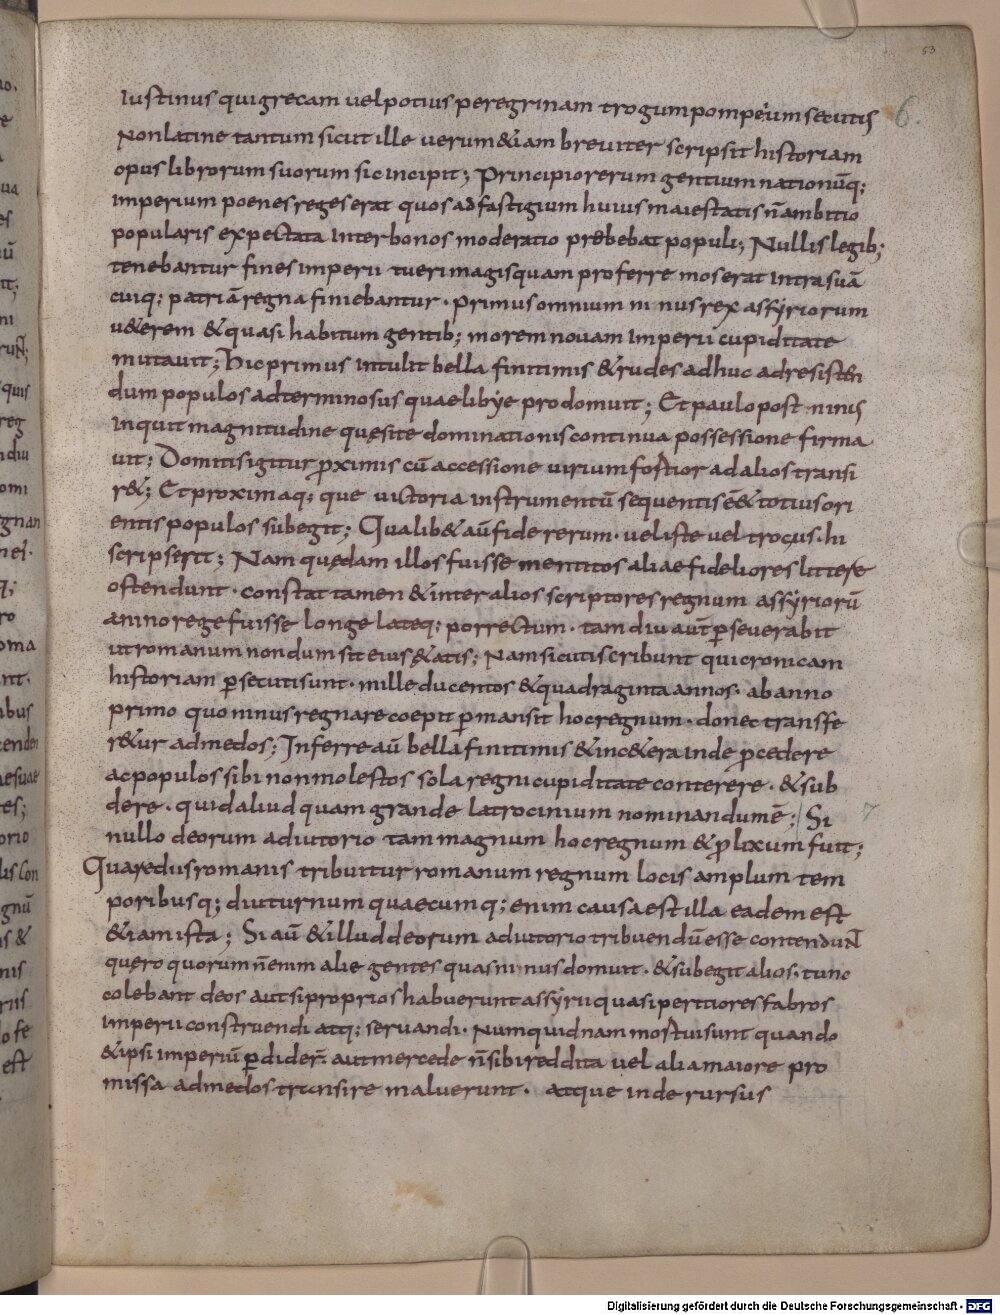 53
Iustinus qui grecam uel potius peregrinam trogum pompeium secutus 6.
Non latine tantum sicut ille uerum &iam breuiter scripsit historiam
opus librorum suorum sic incipit; Principio rerum gentium nationūq;
imperium poenes reges erat quos ad fastigium huius maiestatis n̄ ambitio
popularis expectata inter bonos moderatio prębebat populi; Nullis legib;
tenebantur fines imperii tueri magis quam proferre mos erat intra suā
cuiq; patriā regna finiebantur · Primus omnium ninus rex assyriorum
u&erem & quasi habitum gentib; morem nouam imperii cupiditate
mutauit; Hic primus intulit bella finitimis & rudes adhuc ad resisten
dum populos ad terminos usque libye prodomuit; Et paulo post ninus
inquit magnitudine quęsite dominationis continua possessione firma
uit; Domitis igitur p̱ximis cū accessione uirium fortior ad alios transi
r&; Et proxima q; que uictoria instrumentū sequentis ē& totius ori
entis populos subegit; Qualib& aū fide rerum · uel iste uel trocus · hi
scripserit; Nam quędam illos fuisse mentitos aliae fideliores littere
ostendunt · constat tamen & inter alios scriptores regnum assyriorū
a nino rege fuisse longe lateq; porrectum · tam diu aut̄ p̱seuerabit
ut romanum nondum sit eius &atis; Nam sicuti scribunt qui cronicam
historiam p̱secuti sunt · mille ducentos & quadraginta annos · ab anno
primo quo ninus regnare coepit p̱mansit hoc regnum · donec transfe
r&ur ad medos; Inferre aū bella finitimis & in c&era inde p̱cedere
ac populos sibi non molestos sola regni cupiditate conterere · & sub
dere · quid aliud quam grande latrocinium nominandum ē; Si 7
nullo deorum adiutorio tam magnum hoc regnum & p̱lixum fuit;
Quare dis romanis tribuitur romanum regnum locis amplum tem
poribusq; diuturnum quaecumq; enim causa est illa eadem est
&iam ista; Si aū & illud deorum adiutorio tribuendū esse contendunt
quęro quorum n̄ enim alie gentes quas ninus domuit · & subegit alios · tunc
colebant deos aut si proprios habuerunt assyrii quasi peritiores fabros
imperii construendi atq; seruandi · Numquidnam mortui sunt quando
& ipsi imperiū p̱dider̄ · aut mercede n̄ sibi reddita uel alia maiore pro
missa ad medos transire maluerunt · atque inde rursus
Digitalisierung gefördert durch die Deutsche Forschungsgemeinschaft - DFG